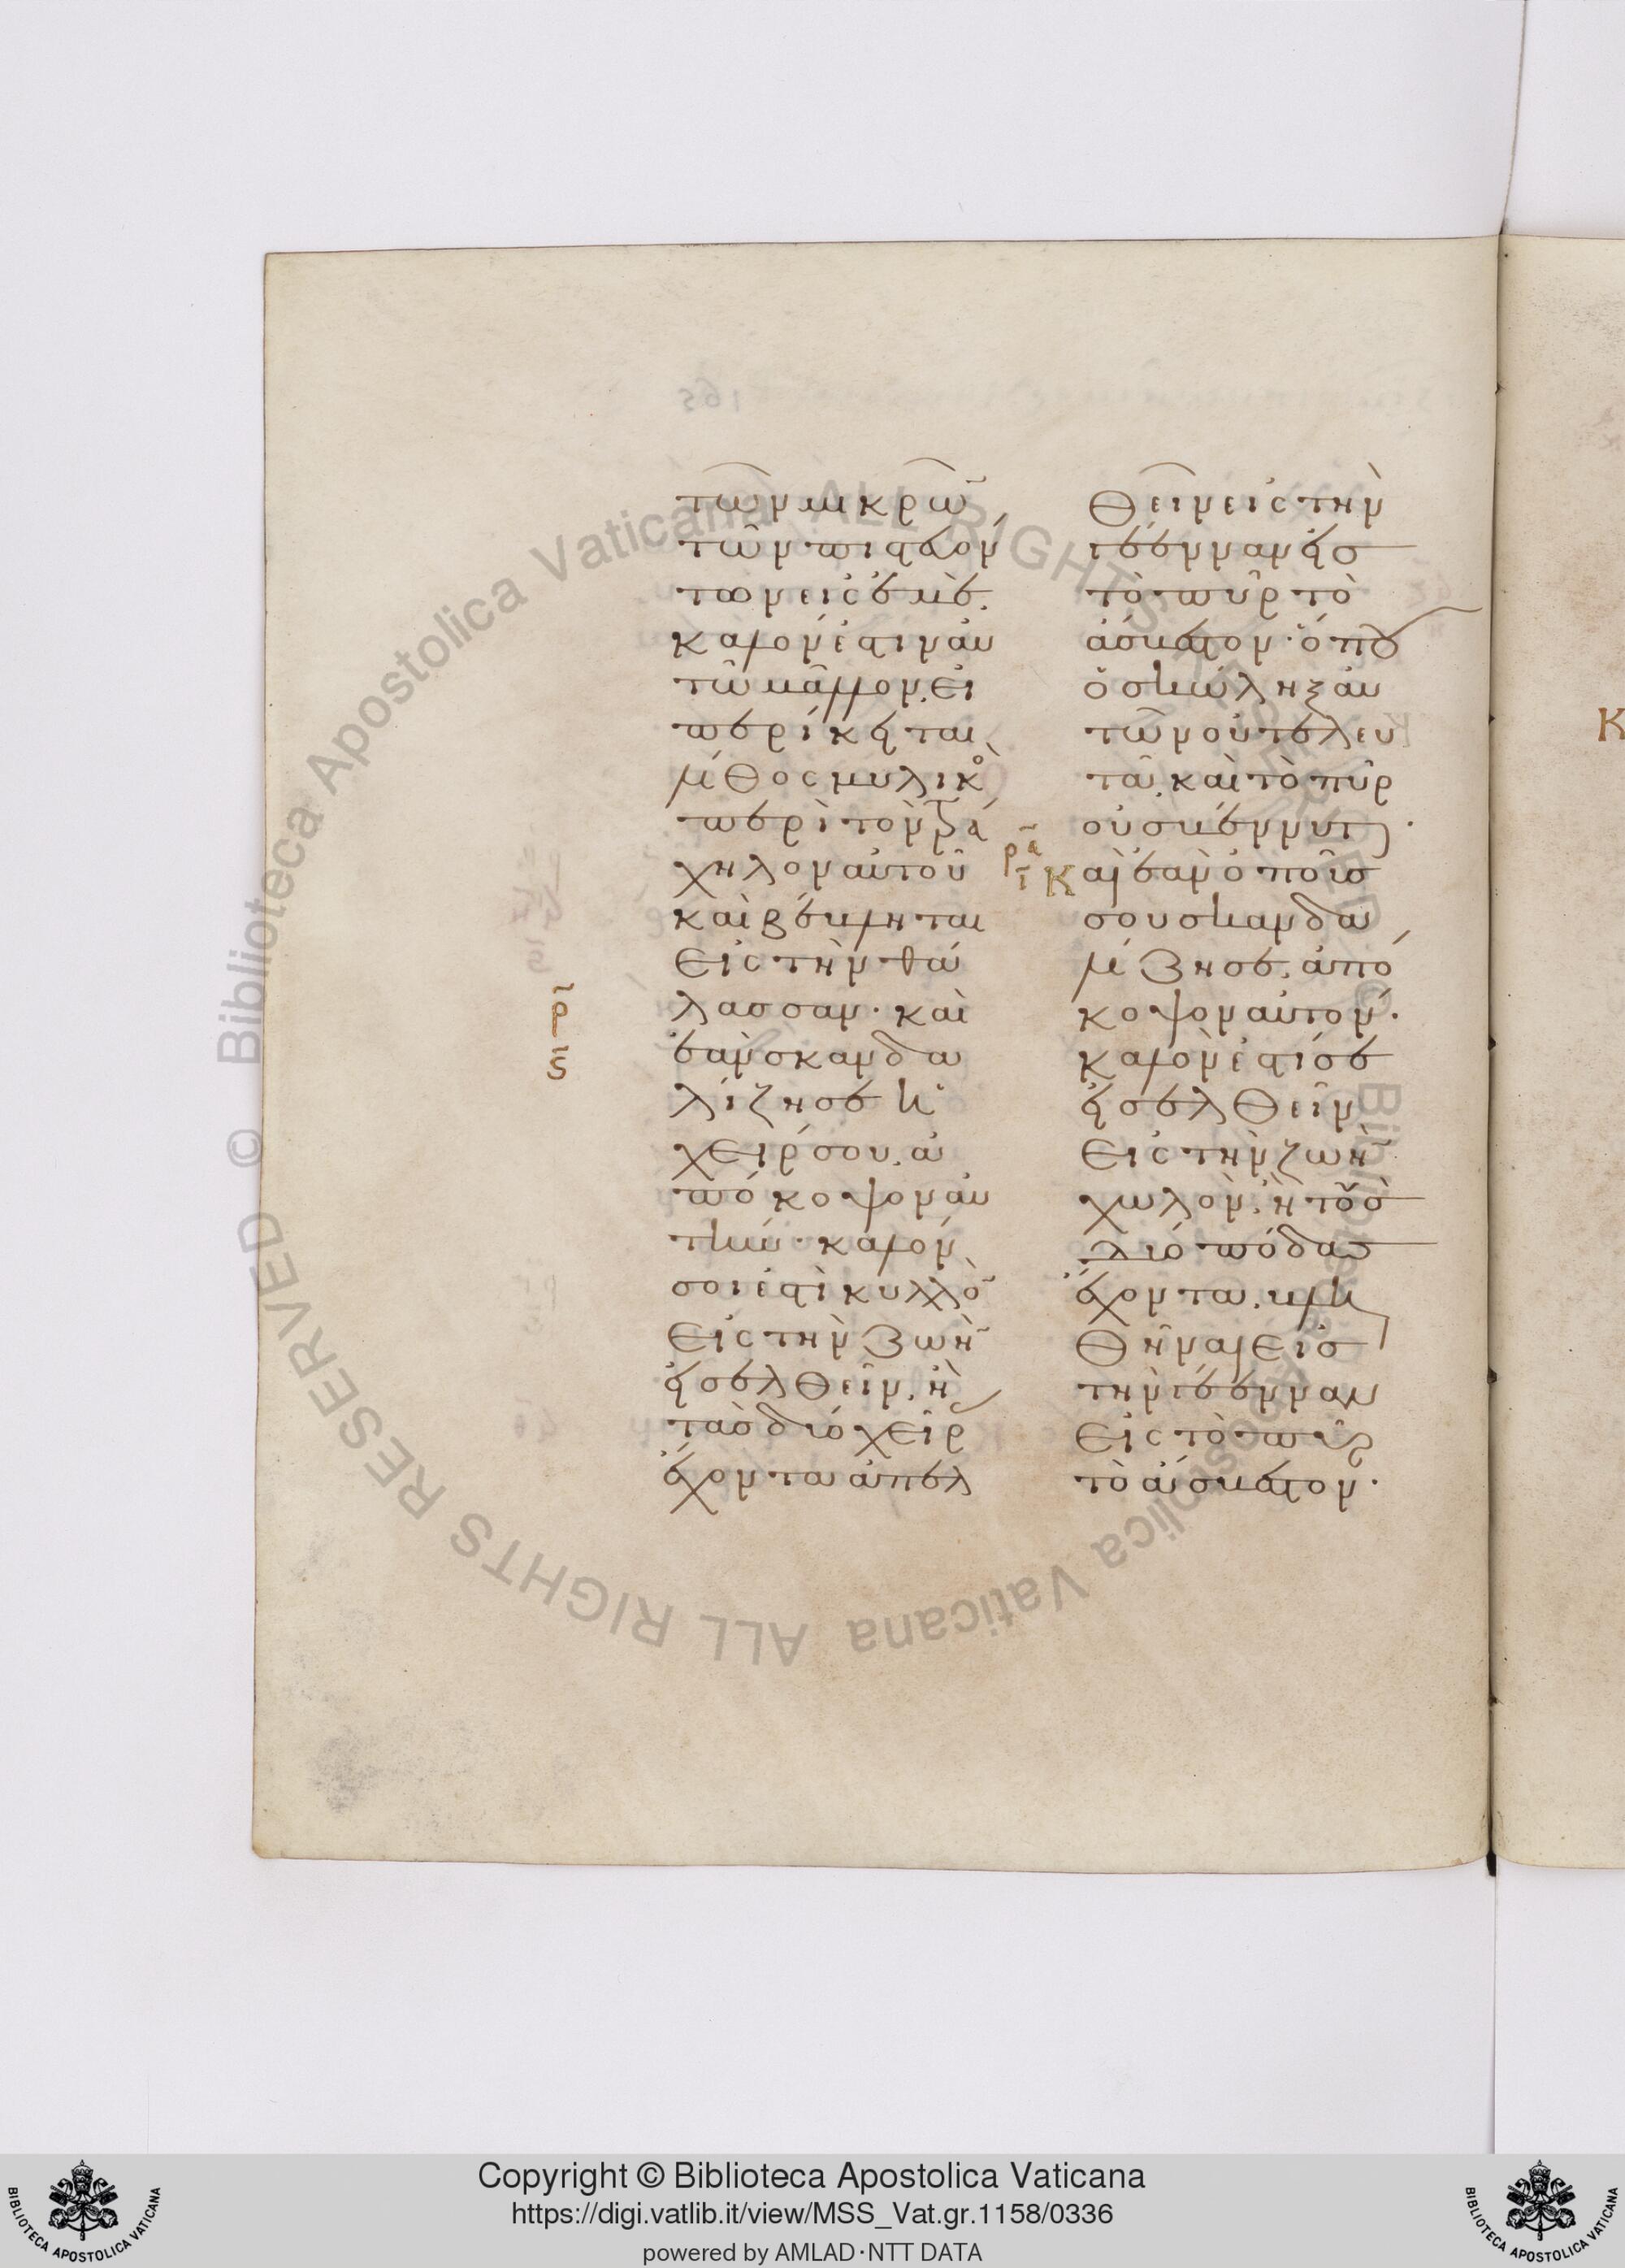 τῶν μικρῶν
τῶν πιστευόν
των εἰς ἐμὲ.
καλόν ἐστιν αὐ
τῶ μᾶλλον. εἰ
περίκειται
λίθος μυλικὸ
περὶ τὸν τρά
χηλον αὐτοῦ
καὶ βέβληται
εἰς τὴν θά
λασσαν· καὶ
ἐὰν σκανδα
λίζησε ἡ
χείρ σου. ἀ
πόκοψον αὐ
τήν· καλόν
σοι ἐστὶ κυλλὸ
εἰς τὴν ζωὴ
εἰσελθεῖν. ἢ
τὰς δύο χεῖρ
ἔχοντα ἀπελ
ρ
ξ
θεῖν εἰς τὴν
γέενναν εἰς
τὸ πῦρ τὸ
ἄσβεστον· ὅπου
ὁ σκώληξ αὐ
τῶν οὐ τελευ
τᾶ. καὶ τὸ πῦρ
οὐ σβέννυται·
ρα
ι
Καὶ ἐὰν ὁ ποῦς
σου σκανδα
λίζησε. ἀπό
κοψον αὐτόν·
καλὸν ἐστί σε
εἰσελθεῖν
εἰς τὴν ζωὴ
χωλὸν. ἢ τοὺς
δύο πόδας
ἔχοντα. βλη
θῆναι εἰς
τὴν γέενναν
εἰς τὸ πῦρ
τὸ ἄσβεστον·
Κ
© Biblioteca Apostolica Vaticana ALL RIGHTS RESERVED
© Biblioteca Apostolica Vaticana ALL RIGHTS RESERVED
Copyright © Biblioteca Apostolica Vaticana
https://digi.vatlib.it/view/MSS_Vat.gr.1158/0336
powered by AMLAD·NTT DATA
BIBLIOTECA APOSTOLICA VATICANA
BIBLIOTECA APOSTOLICA VATICANA